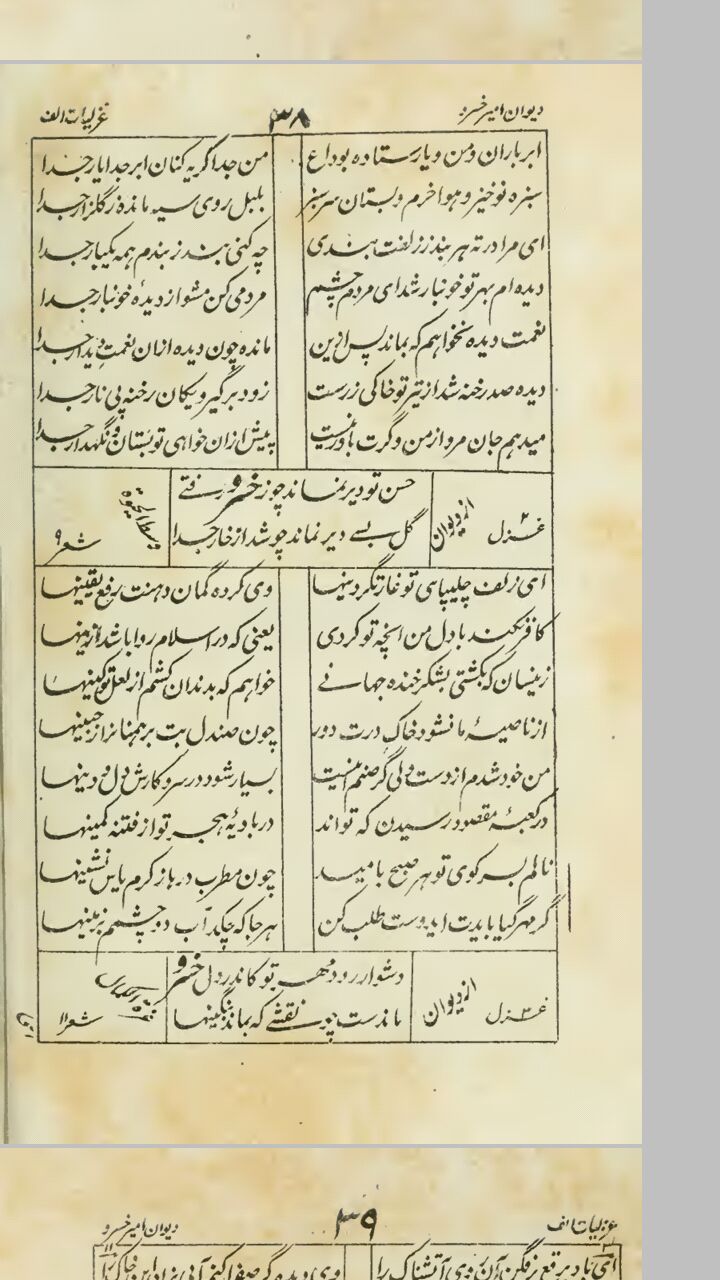 دیوان امیر خسرو ۳۸ غزلیات الف
ابر باران و من و یار ستاده بوداع من جدا گریه کنان ابر جدا یار جدا
سبزه نوخیز و هوا خرم و بستان سرسبز بلبل روی سیه مانده ز گلزار جدا
ای مرا در ته هر بند ز زلفت بندی چه کنی بند ز بندم همه یکبار جدا
دیده ام بهر تو خونبار شد ای مردم چشم مردمی کن مشو از دیده خونبار جدا
نعمت دیده نخواهم که بماند پس ازین مانده چون دیده ازان نعمت دیدار جدا
دیده صد رخنه شد از تیر تو خاکی ز رست زود برگیر و بکان رخنه پی نار جدا
میدهم جان مرو از من وگرت باور نیست پیش ازان خواهی تو بستان و نگهدار جدا
حسن تو دیر نماند چو ز خسرو رفتی
گل بسے دیر نماند چو شد از خار جدا
غزل ۲ از دیوان وسط الحیوة شعر ۹
ای زلف چلیپای تو غارتگر دینها وی کرده گمان دهنت رفع یقینها
کافر نکند با دل من انچه تو کردی یعنی که در اسلام روا باشد ازینها
زینسان که بکشتی بشکر خنده جهانے خواهم که بدندان کشم از لعل تو کینها
از ناصیۀ ما نشود خاک درت دور چون صندل بت برهمنانرا ز جبینها
من خود شدم از دست ولی گر صنم اینست بسیار شود در سر و کارش دل و دینها
در کعبۀ مقصود رسیدن که تواند در بادیۀ هجر تو از فتنه کمینها
نالم بسر کوی تو هر صبح بامید چون مطرب در باز کرم یابس نشینها
گر مهر گیا بایدت ایدوست طلب کن هر جا که چکد آب دو چشمم بزمینها
دشوار رود مهر تو کاندر دل خسرو
ماندست چو نقشے که بماند بنگینها
غزل ۳ از دیوان شعر ۱۱
دیوان امیر خسرو ۳۹ غزلیات الف